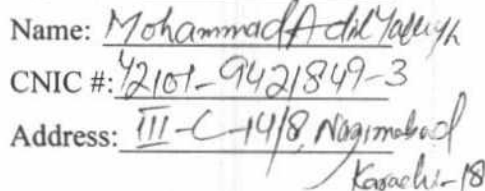 Name: Mohammad Adil
CNIC #: 42101-9421849-3
Address: III-C-14/8, Nazimabad
Karachi-18